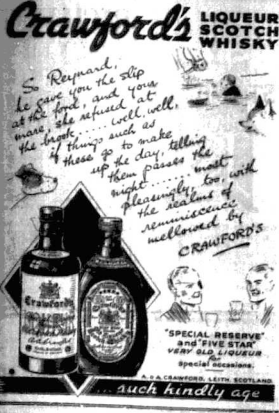 Crawford's LIQUEUR
SCOTCH
WHISKY
So Reynard,
he gave you the slip
at the ford, and your
mare she refused at
the brook..... well, well,
if things such as
these go to make
up the day, telling
them passes the
night....... most
pleasingly, too, with
the realms of
reminiscence
mellowed by
CRAWFORD'S
Crawford's
"SPECIAL RESERVE"
and "FIVE STAR"
VERY OLD LIQUEUR
for
special occasions.
A. & A. CRAWFORD, LEITH, SCOTLAND.
...such kindly age